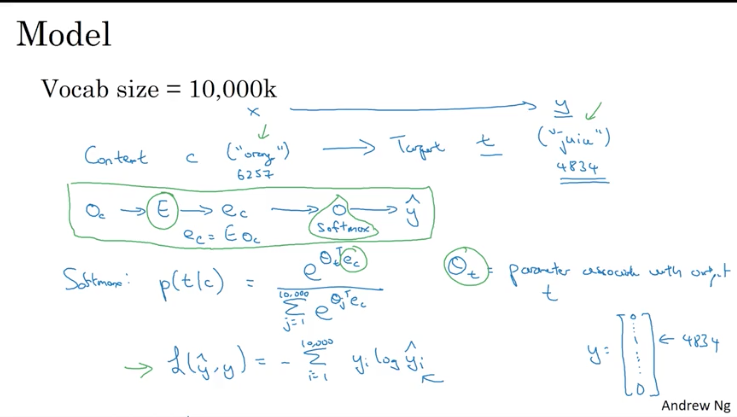 Model
Vocab size = 10,000k
x → y
Context c ("orange") → Target t ("juice")
6257 4834
O_c → E → e_c → O → ŷ
softmax
e_c = E O_c
Softmax: p(t|c) = e^{θ_t^T e_c} / Σ_{j=1}^{10,000} e^{θ_j^T e_c}
θ_t = parameter associated with output t
→ L(ŷ, y) = - Σ_{i=1}^{10,000} y_i log ŷ_i
y = [0 ⋮ 1 ⋮ 0] ← 4834
Andrew Ng